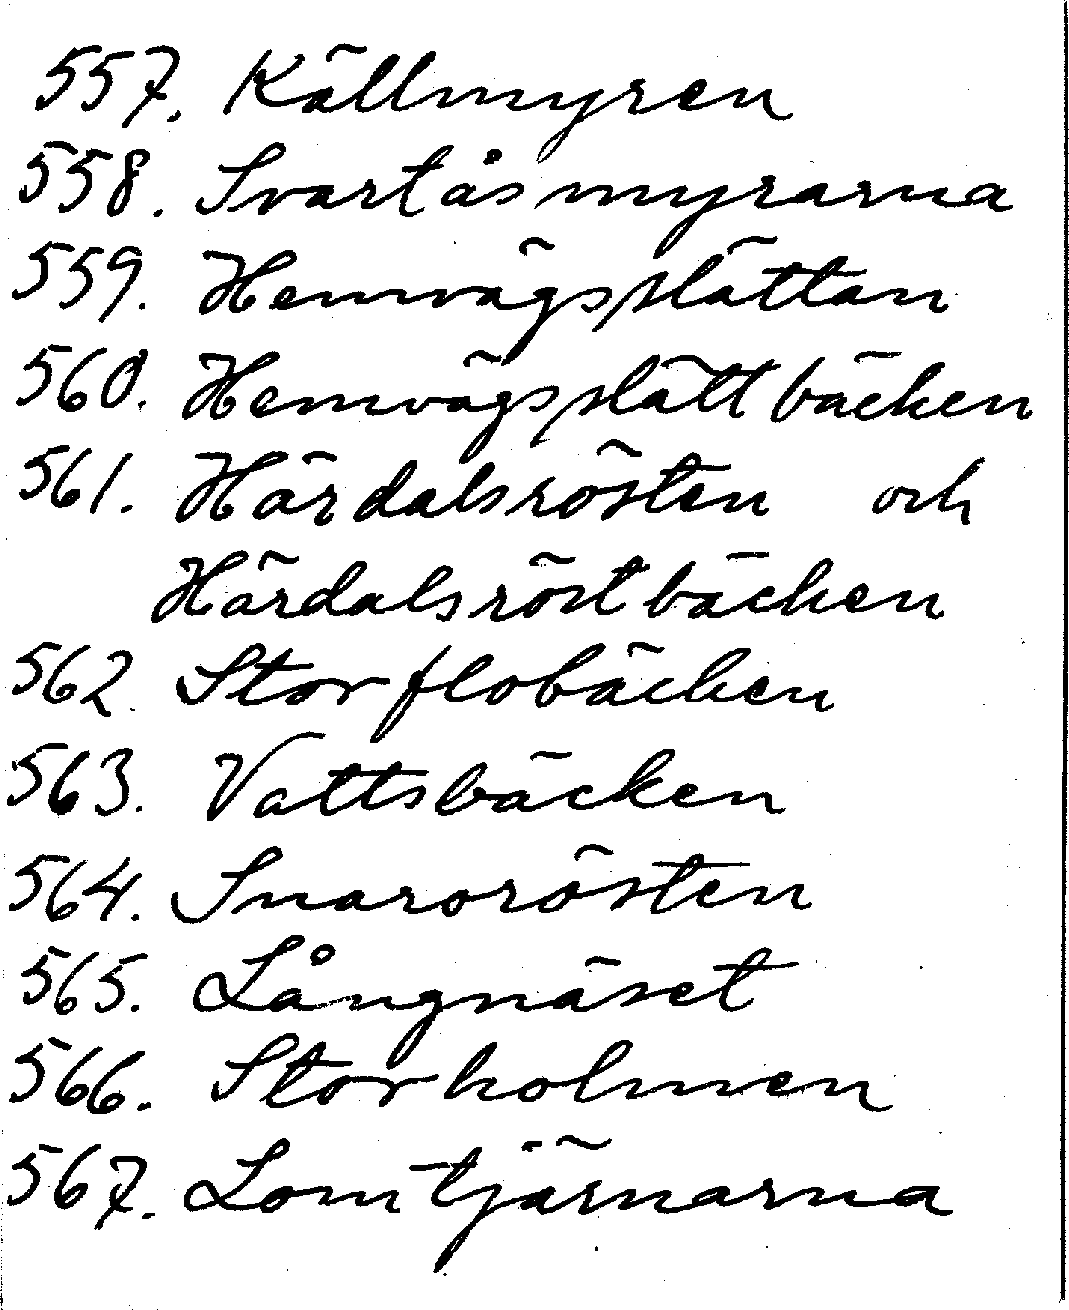 557. Källmyren
558. Svartåsmyrarna
559. Hemvägsslåttan
560. Hemvägsslåttbäcken
561. Härdalsrösten och
Härdalsröstbäcken
562 Storflobäcken
563. Vattsbäcken
564. Snarorösten
565. Långnäset
566. Storholmen
567. Lomtjärnarna